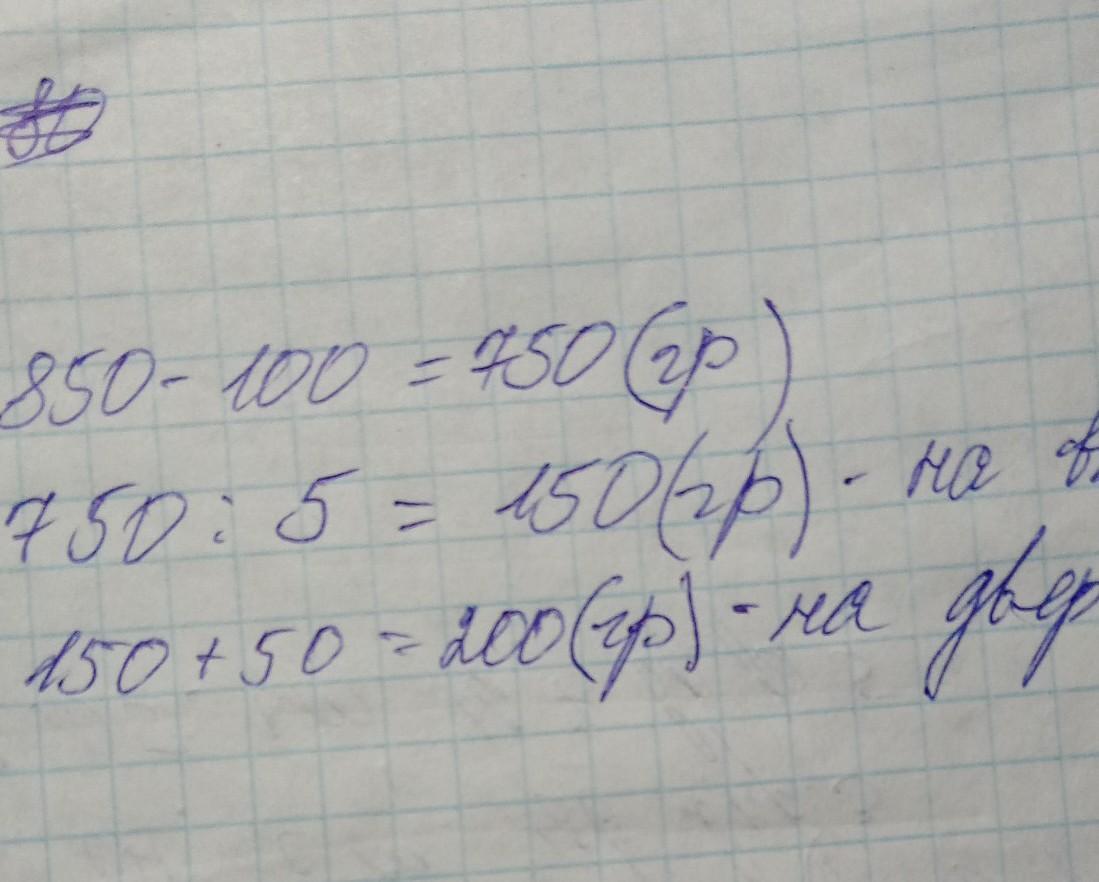 850 - 100 = 750 (гр)
750 : 5 = 150 (гр) - на
150 + 50 = 200 (гр) - на двер